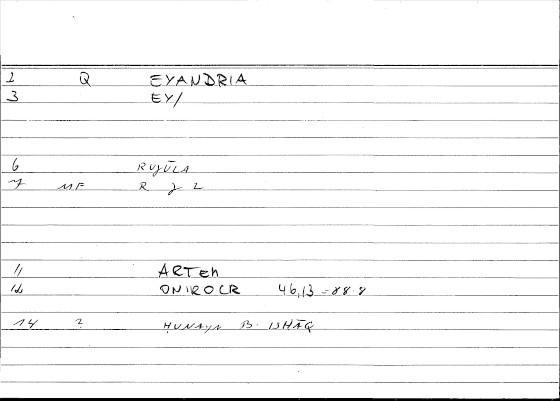 1 Q EYANDRIA
3 EY/
6 RUJŪLA
7 MF R J L
11 ARTEM
12 ONIROCR 46,13 = 88.8
14 2 ḤUNAYN B. ISḤĀQ